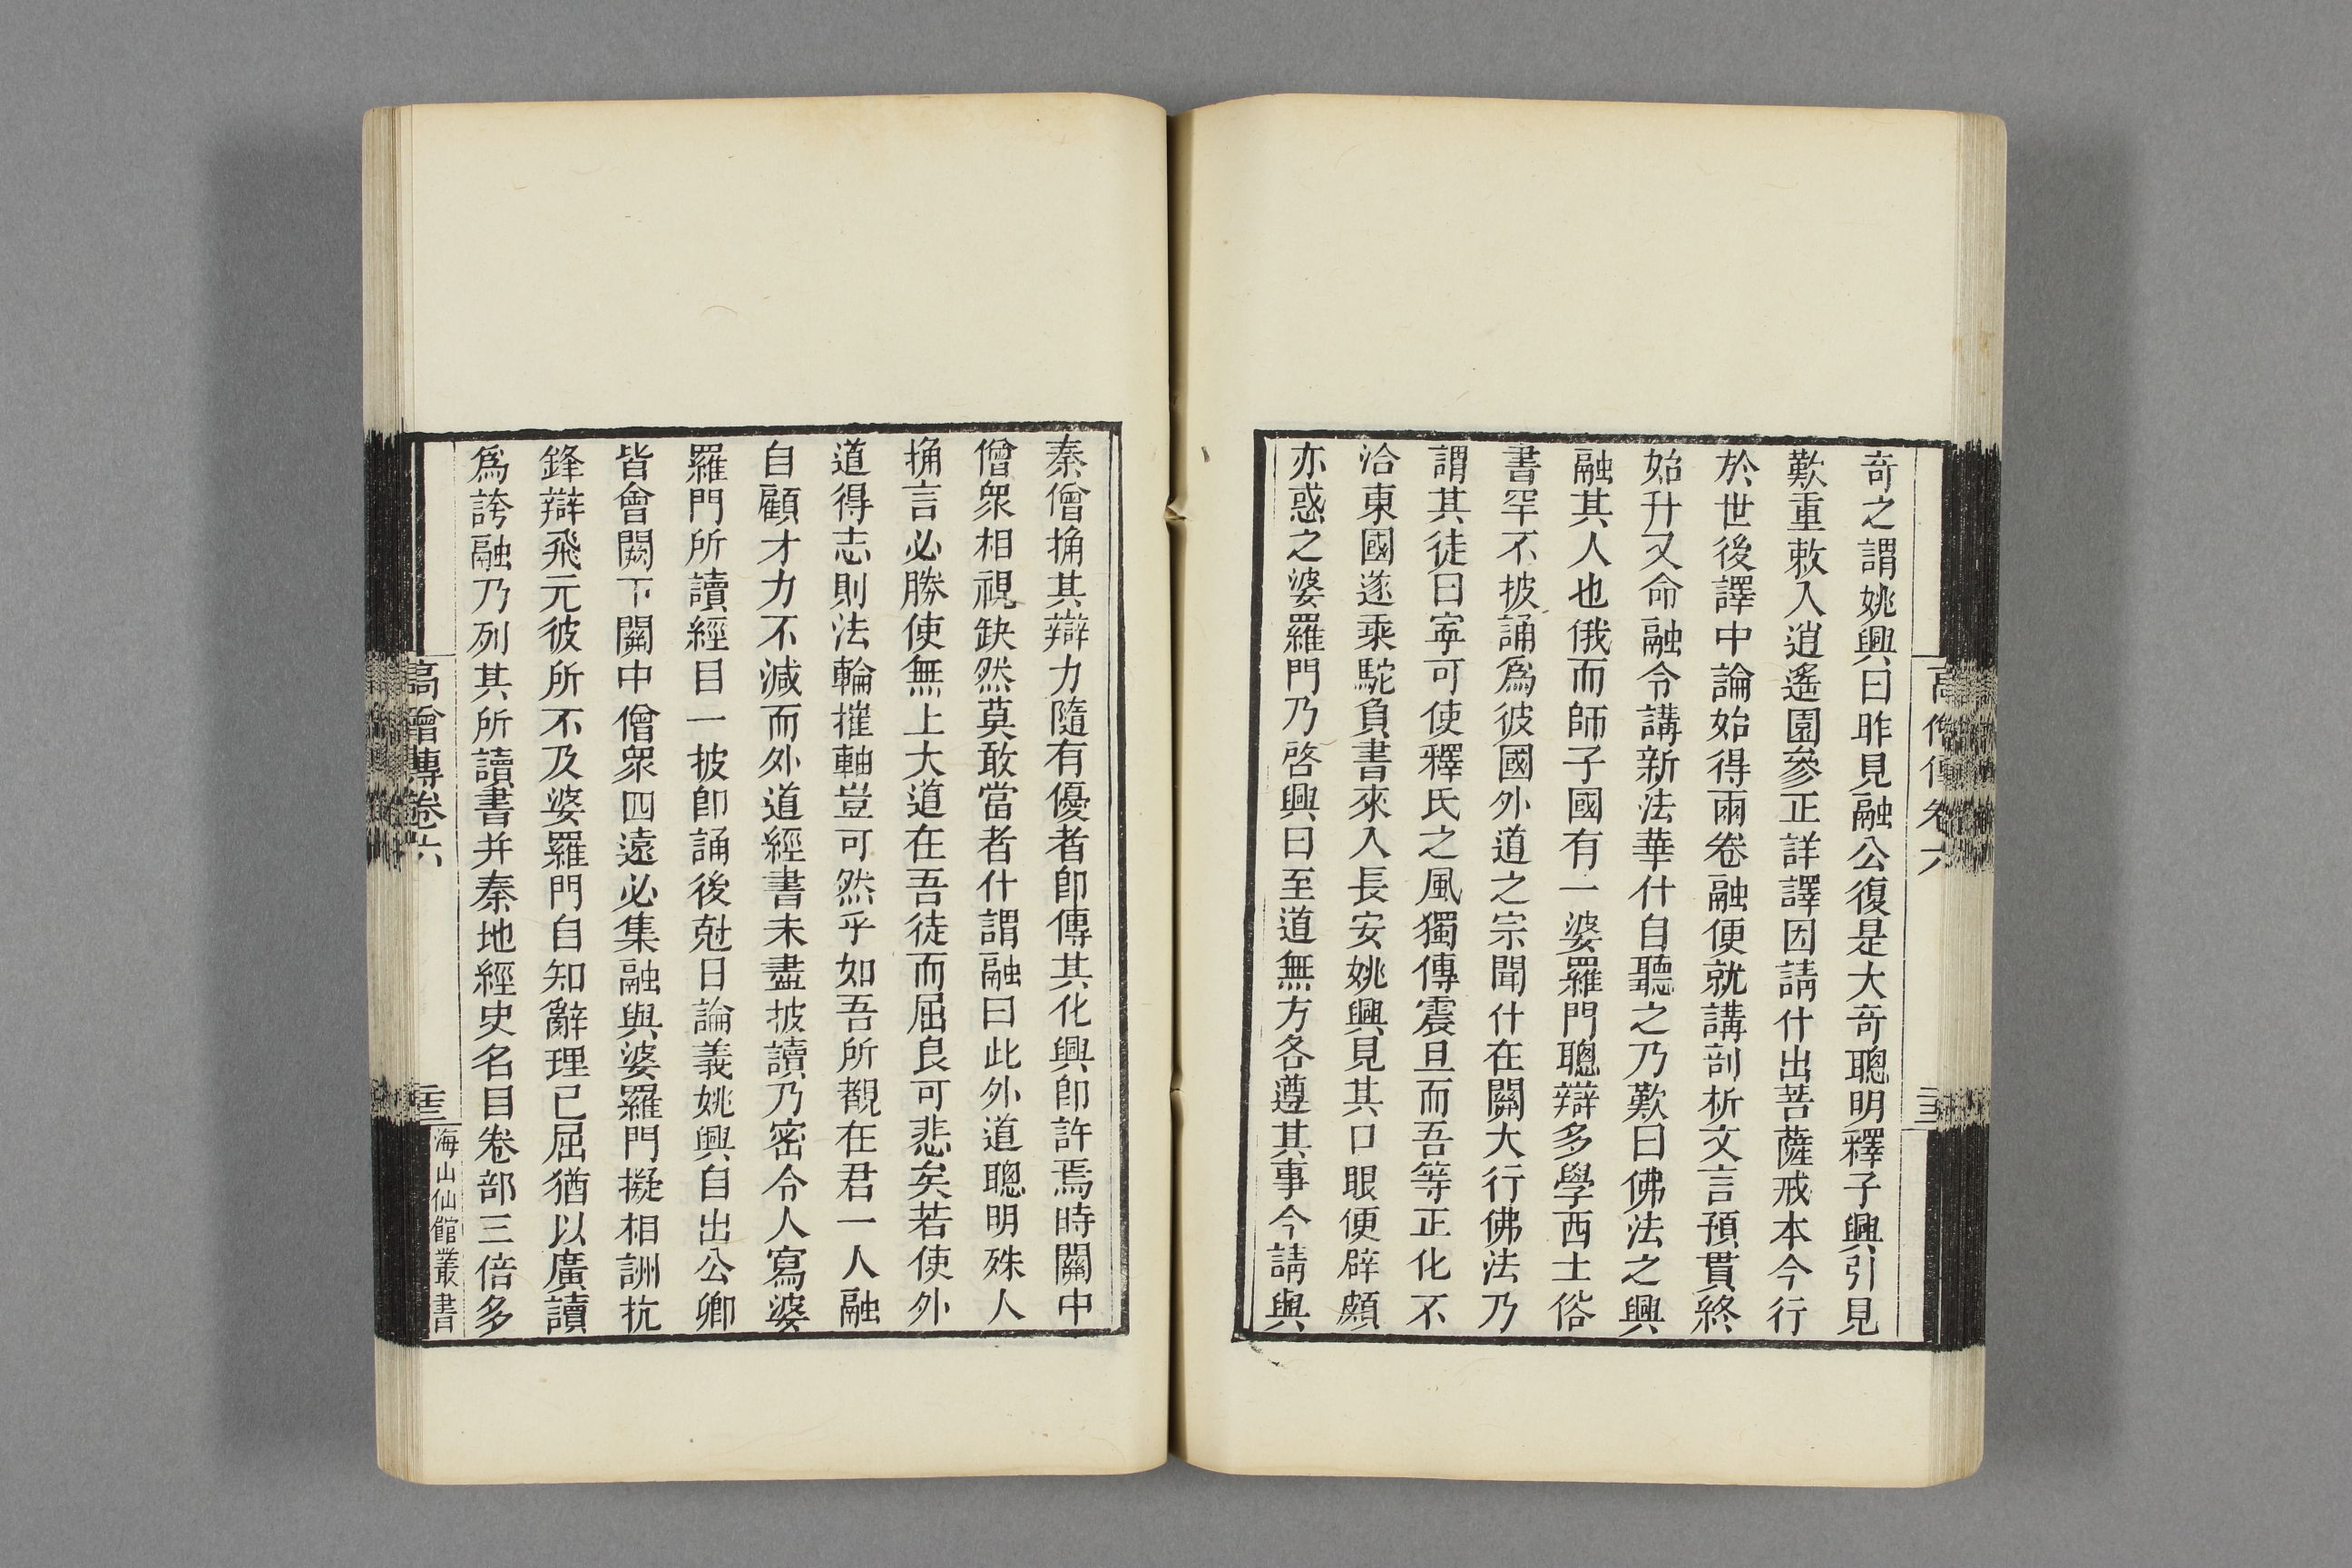 高僧傳卷六
奇之謂姚興曰昨見融公復是大奇聰明釋子興引見
歎重敕入逍遙園參正詳譯因請什出菩薩戒本今行
於世後譯中論始得兩卷融便就講剖析文言預貫終
始升又命融令講新法華什自聽之乃歎曰佛法之興
融其人也俄而師子國有一婆羅門聰辯多學西土俗
書罕不披誦爲彼國外道之宗聞什在關大行佛法乃
謂其徒曰寧可使釋氏之風獨傳震旦而吾等正化不
洽東國遂乘駝負書來入長安姚興見其口眼便辟頗
亦惑之婆羅門乃啓興曰至道無方各遵其事今請與
秦僧捔其辯力隨有優者卽傳其化興卽許焉時關中
僧衆相視缺然莫敢當者什謂融曰此外道聰明殊人
捔言必勝使無上大道在吾徒而屈良可悲矣若使外
道得志則法輪摧軸豈可然乎如吾所觀在君一人融
自顧才力不減而外道經書未盡披讀乃密令人寫婆
羅門所讀經目一披卽誦後尅日論義姚興自出公卿
皆會闕下關中僧衆四遠必集融與婆羅門擬相詶抗
鋒辯飛元彼所不及婆羅門自知辭理已屈猶以廣讀
爲誇融乃列其所讀書并秦地經史名目卷部三倍多
高僧傳卷六
海山仙館叢書